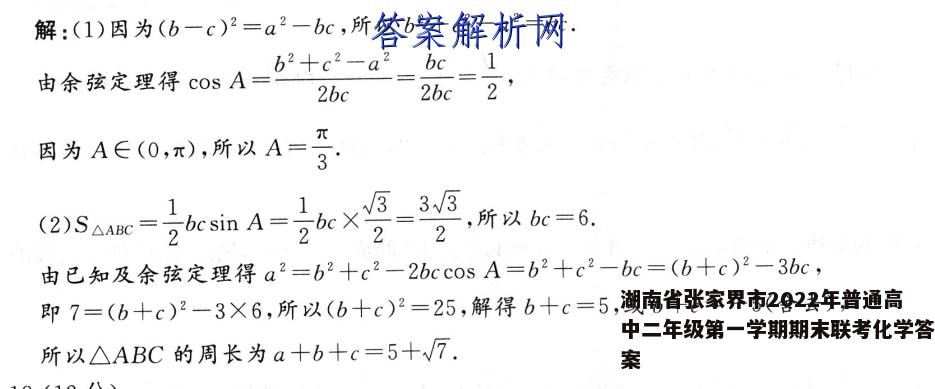 解:(1)因为(b-c)²=a²-bc,所
答案解析网
由余弦定理得 cos A=\frac{b²+c²-a²}{2bc}=\frac{bc}{2bc}=\frac{1}{2},
因为 A∈(0,π),所以 A=\frac{π}{3}.
(2)S△ABC=\frac{1}{2}bcsin A=\frac{1}{2}bc×\frac{√3}{2}=\frac{3√3}{2},所以 bc=6.
由已知及余弦定理得 a²=b²+c²-2bccos A=b²+c²-bc=(b+c)²-3bc,
即 7=(b+c)²-3×6,所以(b+c)²=25,解得 b+c=5,
湖南省张家界市2022年普通高
中二年级第一学期期末联考化学答
案
所以△ABC 的周长为 a+b+c=5+√7.